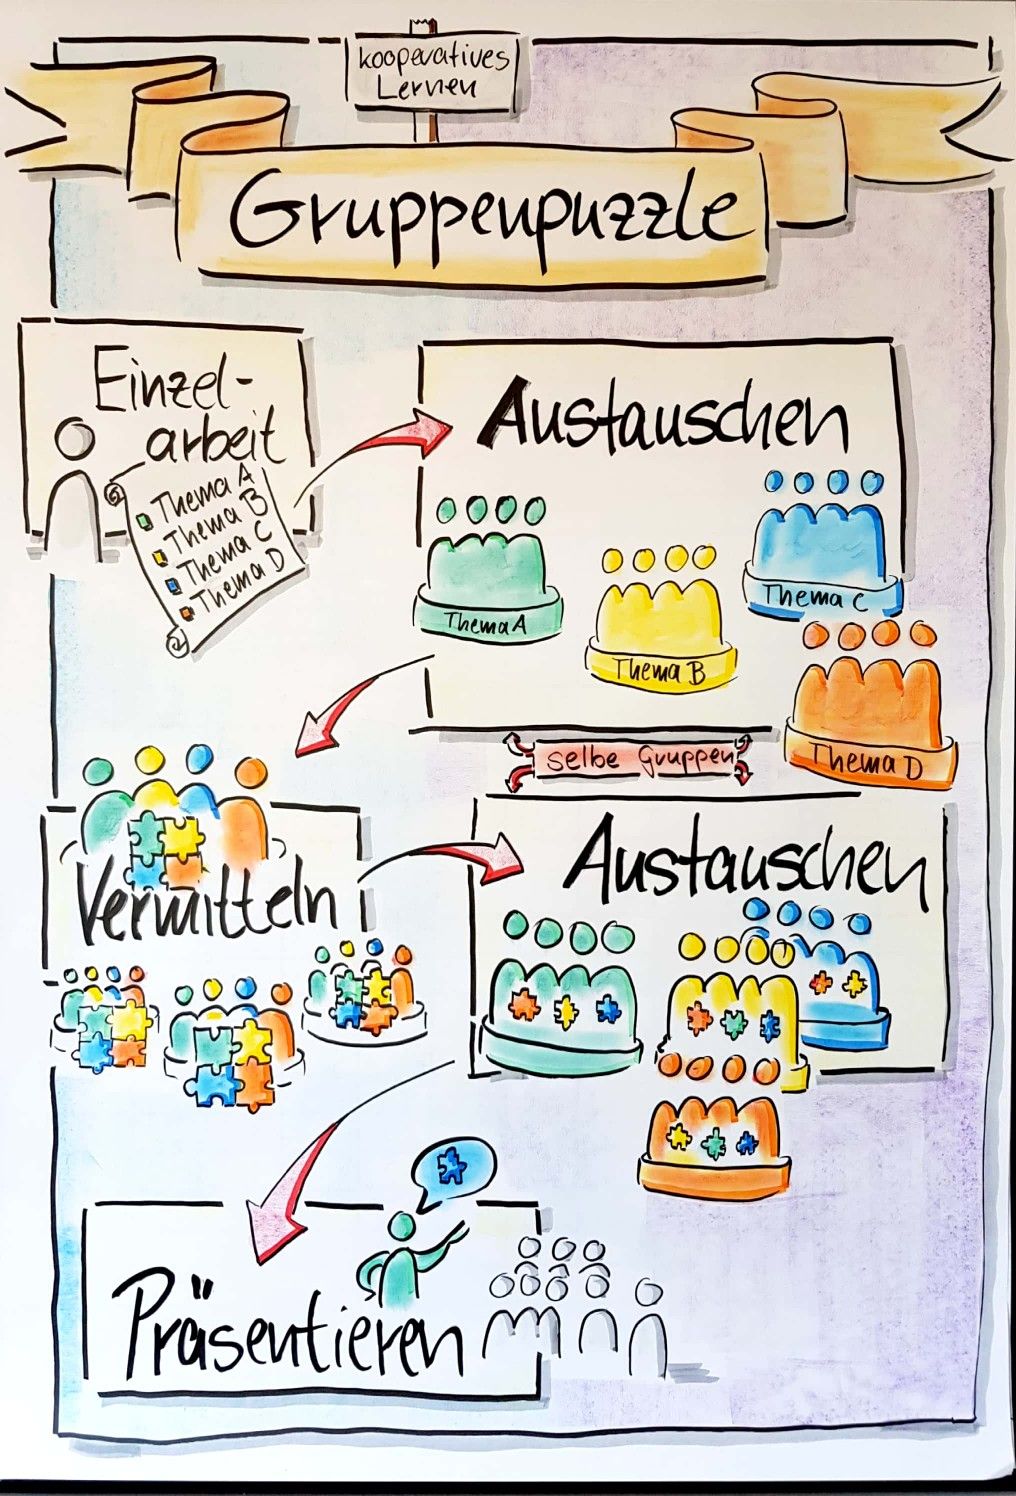 kooperatives
Lernen
Gruppenpuzzle
Einzel-
arbeit
Thema A
Thema B
Thema C
Thema D
Austauschen
Thema A
Thema B
Thema C
Thema D
selbe Gruppen
Vermitteln
Austauschen
Präsentieren